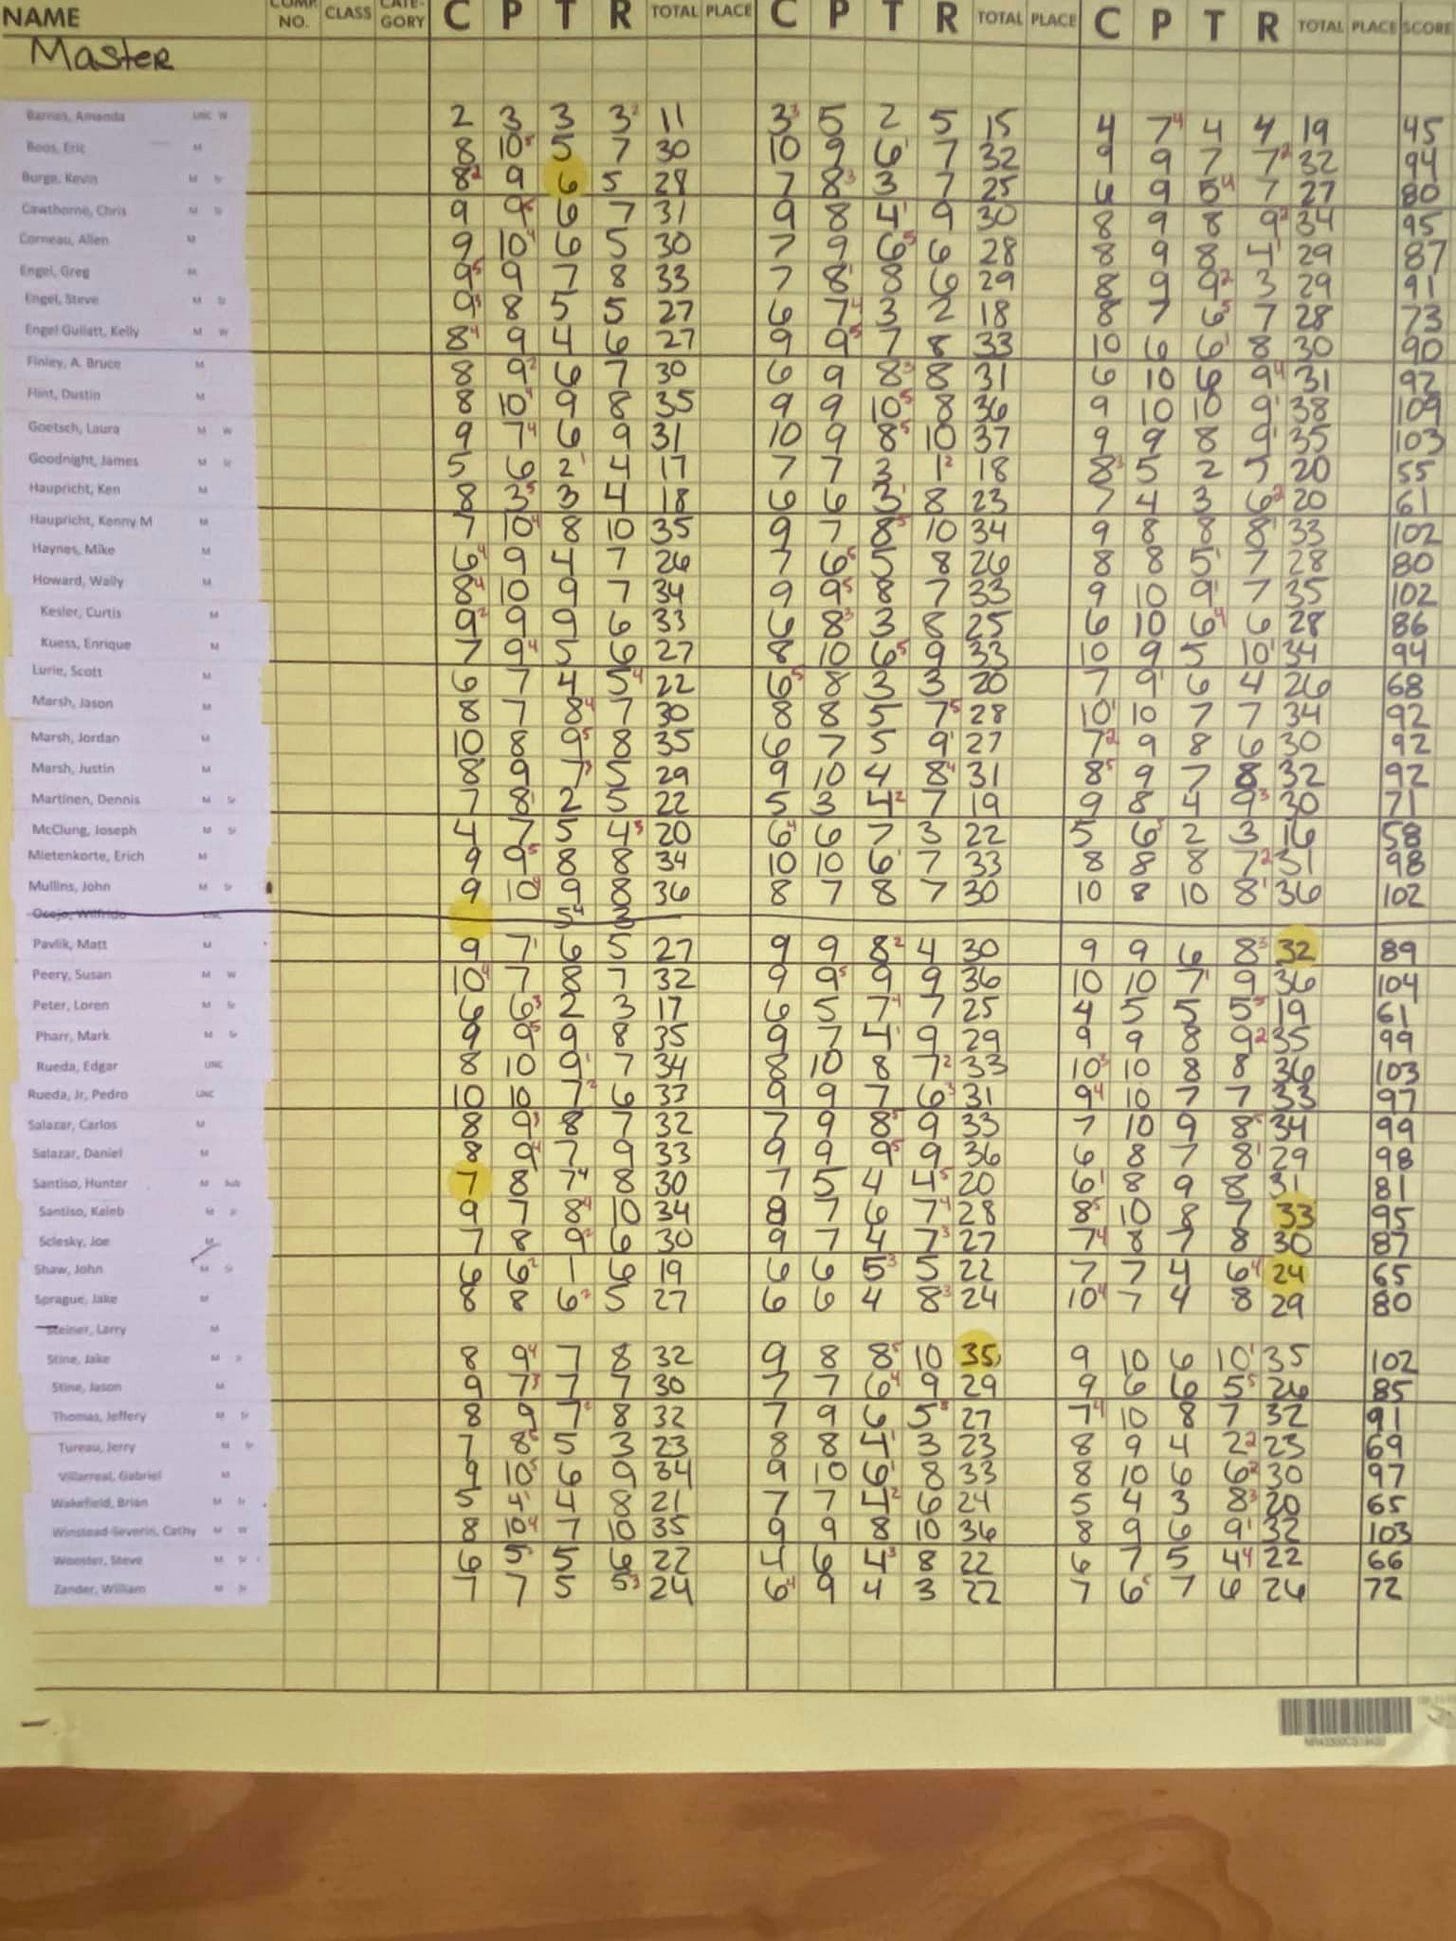 NAME COMP. NO. CLASS CATE-GORY C P T R TOTAL PLACE C P T R TOTAL PLACE C P T R TOTAL PLACE SCORE
Master
Barnas, Amanda UNC W 2 3 3 3² 11 3³ 5 2 5 15 4 7⁴ 4 4 19 45
Boos, Eric M 8 10⁵ 5 7 30 10 9 6¹ 7 32 9 9 7 7² 32 94
Burge, Kevin M Sr 8² 9 6 5 28 7 8³ 3 7 25 6 9 5⁴ 7 27 80
Cawthorne, Chris M Sr 9 9⁵ 6 7 31 9 8 4¹ 9 30 8 9 8 9² 34 95
Corneau, Allen M 9 10⁴ 6 5 30 7 9 6⁵ 6 28 8 9 8 4¹ 29 87
Engel, Greg M 9⁵ 9 7 8 33 7 8¹ 8 6 29 8 9 9² 3 29 91
Engel, Steve M Sr 9³ 8 5 5 27 6 7⁴ 3 2 18 8 7 6⁵ 7 28 73
Engel Gullatt, Kelly M W 8⁴ 9 4 6 27 9 9⁵ 7 8 33 10 6 6¹ 8 30 90
Finley, A. Bruce M 8 9² 6 7 30 6 9 8³ 8 31 6 10 6 9⁴ 31 92
Flint, Dustin M 8 10¹ 9 8 35 9 9 10⁵ 8 36 9 10 10 9¹ 38 109
Goetsch, Laura M W 9 7⁴ 6 9 31 10 9 8⁵ 10 37 9 9 8 9¹ 35 103
Goodnight, James M Sr 5 6 2¹ 4 17 7 7 3 1² 18 8³ 5 2 5 20 55
Haupricht, Ken M 8 3⁵ 3 4 18 6 6 3¹ 8 23 7 4 3 6² 20 61
Haupricht, Kenny M M 7 10⁴ 8 10 35 9 7 8⁵ 10 34 9 8 8 8¹ 33 102
Haynes, Mike M 6⁴ 9 4 7 26 7 6⁵ 5 8 26 8 8 5¹ 7 28 80
Howard, Wally M 8⁴ 10 9 7 34 9 9⁵ 8 7 33 9 10 9¹ 7 35 102
Kesler, Curtis M 9² 9 9 6 33 6 8³ 3 8 25 6 10 6⁴ 6 28 86
Kuess, Enrique M 7 9⁴ 5 6 27 8 10 6⁵ 9 33 10 9 5 10¹ 34 94
Lurie, Scott M 6 7 4 5⁴ 22 6⁵ 8 3 3 20 7 9¹ 6 4 26 68
Marsh, Jason M 8 7 8⁴ 7 30 8 8 5 7⁵ 28 10¹ 10 7 7 34 92
Marsh, Jordan M 10 8 9⁵ 8 35 6 7 5 9¹ 27 7² 9 8 6 30 92
Marsh, Justin M 8 9 7³ 5 29 9 10 4 8⁴ 31 8⁵ 9 7 8 32 92
Martinen, Dennis M Sr 7 8¹ 2 5 22 5 3 4² 7 19 9 8 4 9³ 30 71
McClung, Joseph M Sr 4 7 5 4³ 20 6⁴ 6 7 3 22 5 6⁵ 2 3 16 58
Mietenkorte, Erich M 9 9⁵ 8 8 34 10 10 6¹ 7 33 8 8 8 7² 31 98
Mullins, John M Sr 9 10⁴ 9 8 36 8 7 8 7 30 10 8 10 8¹ 36 102
Ocejo, Wilfrido UNC 5⁴ 3
Pavlik, Matt M 9 7¹ 6 5 27 9 9 8² 4 30 9 9 6 8³ 32 89
Peery, Susan M W 10⁴ 7 8 7 32 9 9⁵ 9 9 36 10 10 7¹ 9 36 104
Peter, Loren M Sr 6 6³ 2 3 17 6 5 7⁴ 7 25 4 5 5 5⁵ 19 61
Pharr, Mark M Sr 9 9⁵ 9 8 35 9 7 4¹ 9 29 9 9 8 9² 35 99
Rueda, Edgar UNC 8 10 9¹ 7 34 8 10 8 7² 33 10³ 10 8 8 36 103
Rueda, Jr, Pedro UNC 10 10 7² 6 33 9 9 7 6³ 31 9⁴ 10 7 7 33 97
Salazar, Carlos M 8 9³ 8 7 32 7 9 8⁵ 9 33 7 10 9 8⁵ 34 99
Salazar, Daniel M 8 9⁴ 7 9 33 9 9 9⁵ 9 36 6 8 7 8¹ 29 98
Santiso, Hunter M Sub 7 8 7⁴ 8 30 7 5 4 4⁵ 20 6¹ 8 9 8 31 81
Santiso, Kaleb M Jr 9 7 8⁴ 10 34 8 7 6 7⁴ 28 8⁵ 10 8 7 33 95
Sclesky, Joe M 7 8 9² 6 30 9 7 4 7³ 27 7⁴ 8 7 8 30 87
Shaw, John M Sr 6 6² 1 6 19 6 6 5³ 5 22 7 7 4 6⁴ 24 65
Sprague, Jake M 8 8 6² 5 27 6 6 4 8³ 24 10⁴ 7 4 8 29 80
Steiner, Larry M
Stine, Jake M Jr 8 9⁴ 7 8 32 9 8 8⁵ 10 35 9 10 6 10¹ 35 102
Stine, Jason M 9 7³ 7 7 30 7 7 6⁴ 9 29 9 6 6 5⁵ 26 85
Thomas, Jeffery M Sr 8 9 7² 8 32 7 9 6 5³ 27 7⁴ 10 8 7 32 91
Tureau, Jerry M Sr 7 8⁵ 5 3 23 8 8 4¹ 3 23 8 9 4 2² 23 69
Villarreal, Gabriel M 9 10⁵ 6 9 34 9 10 6¹ 8 33 8 10 6 6² 30 97
Wakefield, Brian M Sr 5 4¹ 4 8 21 7 7 4² 6 24 5 4 3 8³ 20 65
Winstead-Severin, Cathy M W 8 10⁴ 7 10 35 9 9 8 10 36 8 9 6 9¹ 32 103
Wooster, Steve M Sr 6 5 5 6 22 4 6 4³ 8 22 6 7 5 4⁴ 22 66
Zander, William M Sr 7 7 5 5³ 24 6⁴ 9 4 3 22 7 6⁵ 7 6 26 72